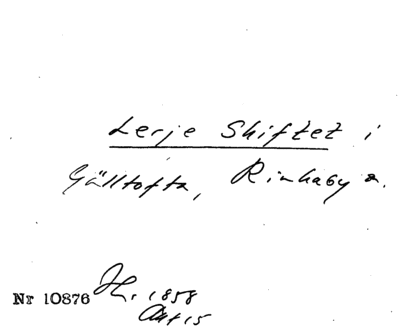 Lerje Shiftet i
Gälltofta, Rinkaby a.
Nr 10876 H. 1858
Akt 15